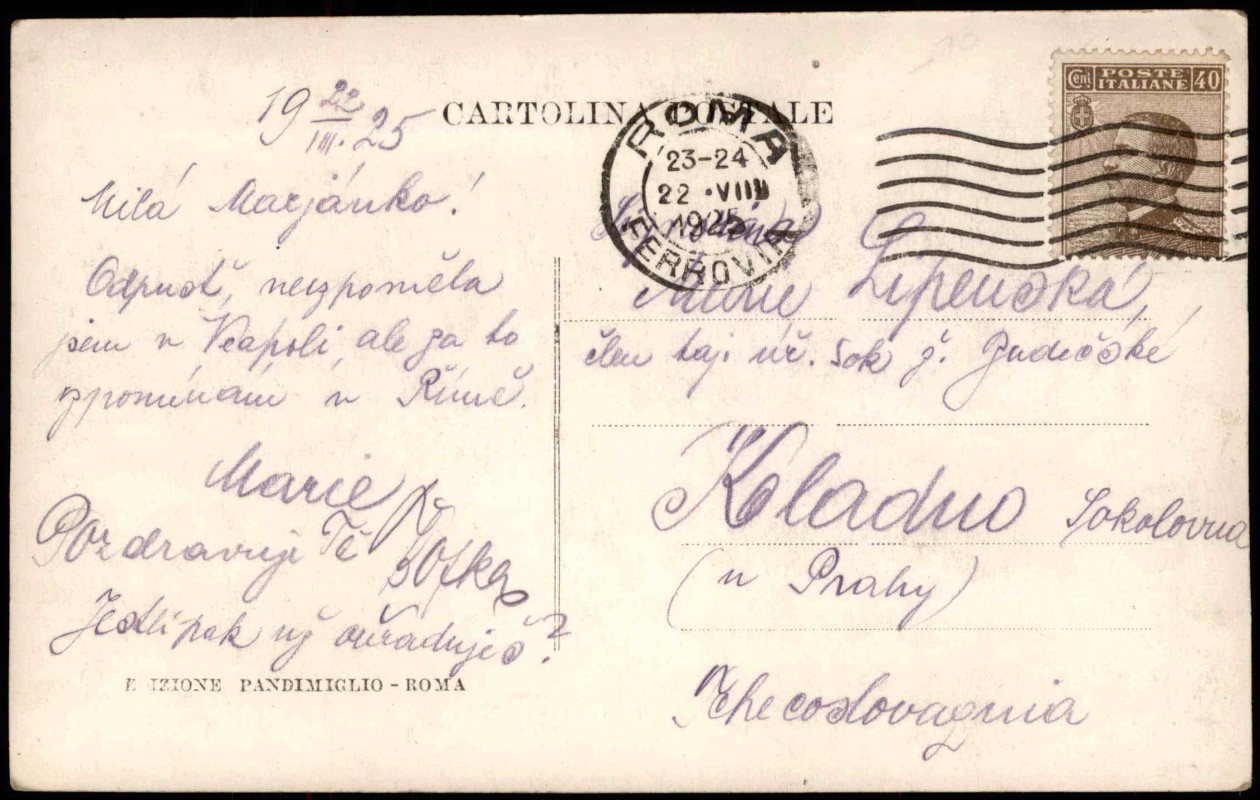 CARTOLINA POSTALE
19 22/III. 25
Milá Marjánko!
Odpusť, nevzpoměla
jsem v Neapoli, ale za to
vzpomínám v Římě.
Marie
Pozdravuji Tě Žofka
Jestli pak už ouřaduješ?
EDIZIONE PANDIMIGLIO - ROMA
ROMA
23-24
22 ·VIII
1925
FERROVIA
Cent POSTE ITALIANE 40
Marie Lipenská,
člen taj. úř. Sok ž. Budečské
Kladno Sokolovna
(u Prahy)
Tchecoslovagnia